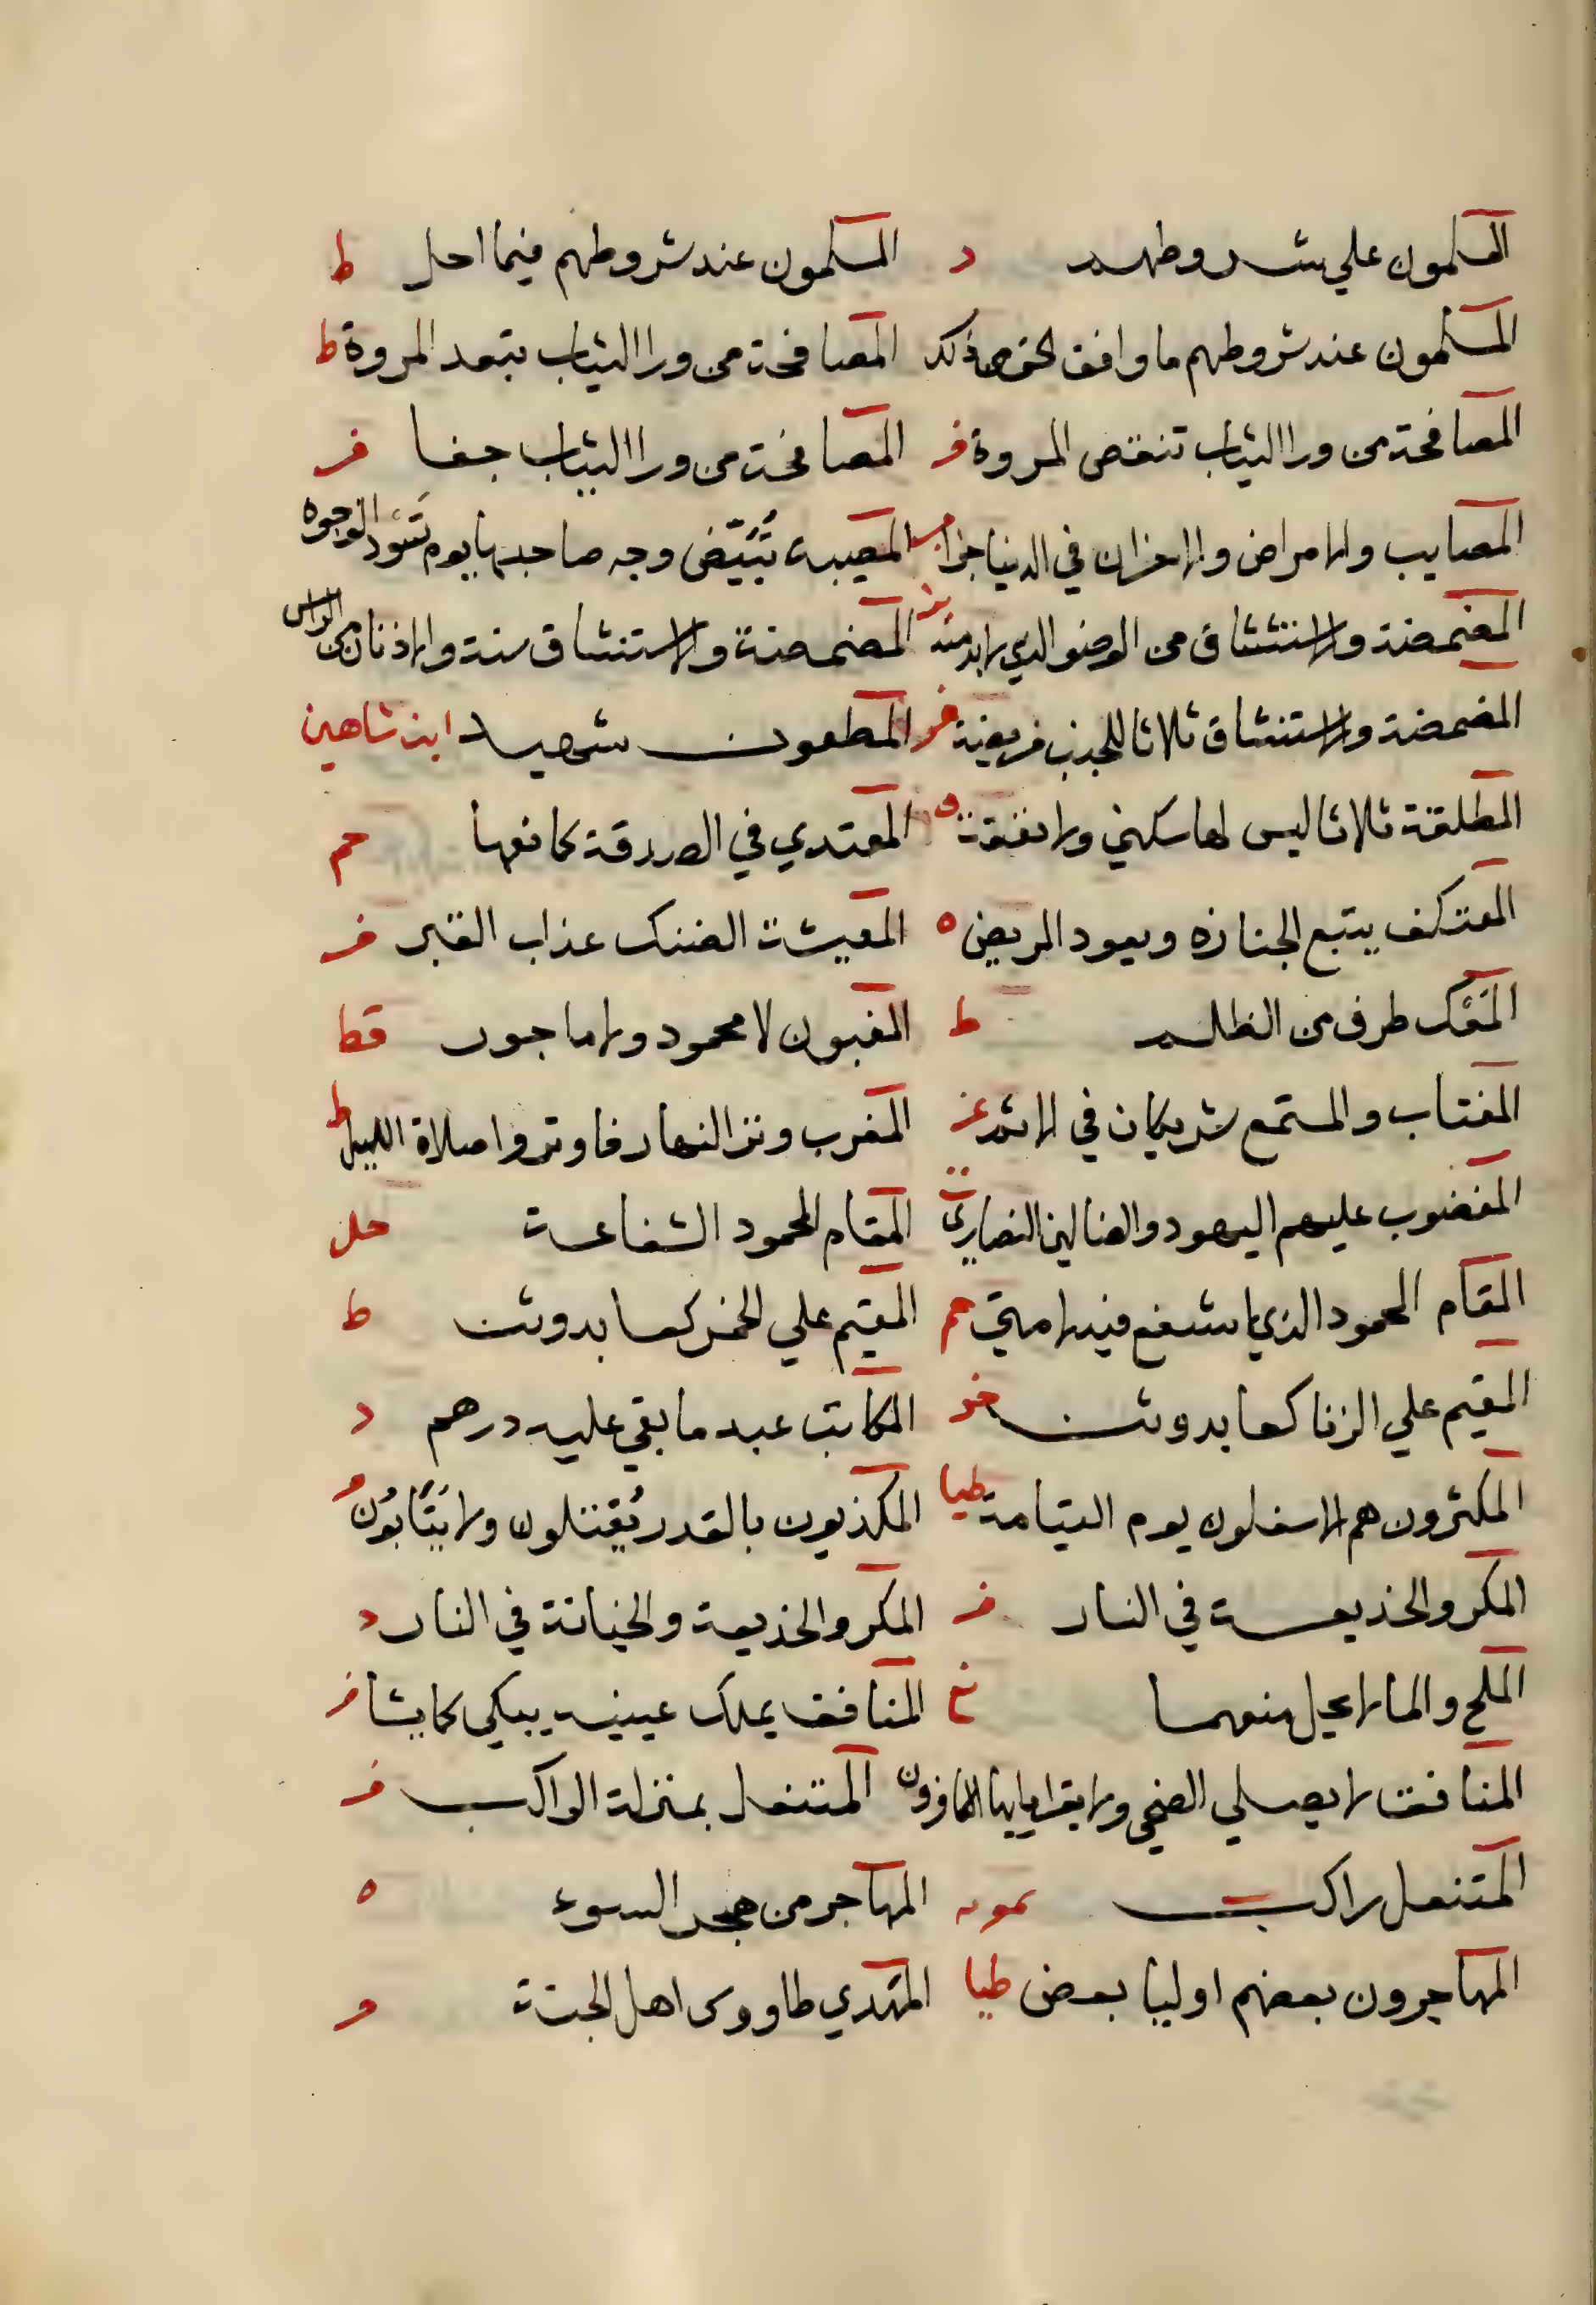 المسلمون علي شروطهم د المسلمون عند شروطهم فيما احل ط
المسلمون عند شروطهم ما وافق الحق من ذلك ك المصافحة من ورا الثياب تبعد المروة ط
المصافحة من ورا الثياب تنقص المروة فر المصافحة من ورا الثياب جفا فر
المصايب والامراض والاحزان في الدنيا جزا المصيبة تُبَيّض وجه صاحبها يوم تَسْوَد الوجوه
المضمضة والاستنشاق من الوضو الذي لابد منه المضمضة والاستنشاق سنة والاذنان من الراس
المضمضة والاستنشاق ثلاثا للجنب فريضة المطعون شهيد ابن شاهين
المطلقة ثلاثا ليس لها سكني ولا نفقة ه المعتدي في الصدقة كمانعها حم
المعتكف يتبع الجنازه ويعود المريض ه المعيشة الضنك عذاب القبر فر
المَعْك طرف من الظلم ط المغبون لا محمود ولا ماجور قط
المغتاب والمستمع شريكان في الاثم غز المغرب وتر النهار فاوتروا صلاة الليل ط
المغضوب عليهم اليهود والضالين النصاري ت المقام المحمود الشفاعة حل
المقام المحمود الذي اشفع فيه لامتي حم المقيم علي الخمر كعابد وثن ط
المقيم علي الزنا كعابد وثن خر المكاتب عبد ما بقي عليه درهم د
المكثرون هم الاسفلون يوم القيامة طيا المكذبون بالقدر يُقتلون ولا يَتَابَون
المكر والخديعة في النار فر المكر والخديعة والخيانة في النار د
الملح والما لا يحل منعهما نع المنافق يملك عينيه يبكي كما يشا فر
المنافق لا يصلي الضحي ولا يقرا يا ايها الكافرون المنتعل بمنزلة الراكب فر
المتنعل راكب سمويه المهاجر من هجر السوء ه
المهاجرون بعضهم اوليا بعض طيا المهدي طاووس اهل الجنة فر